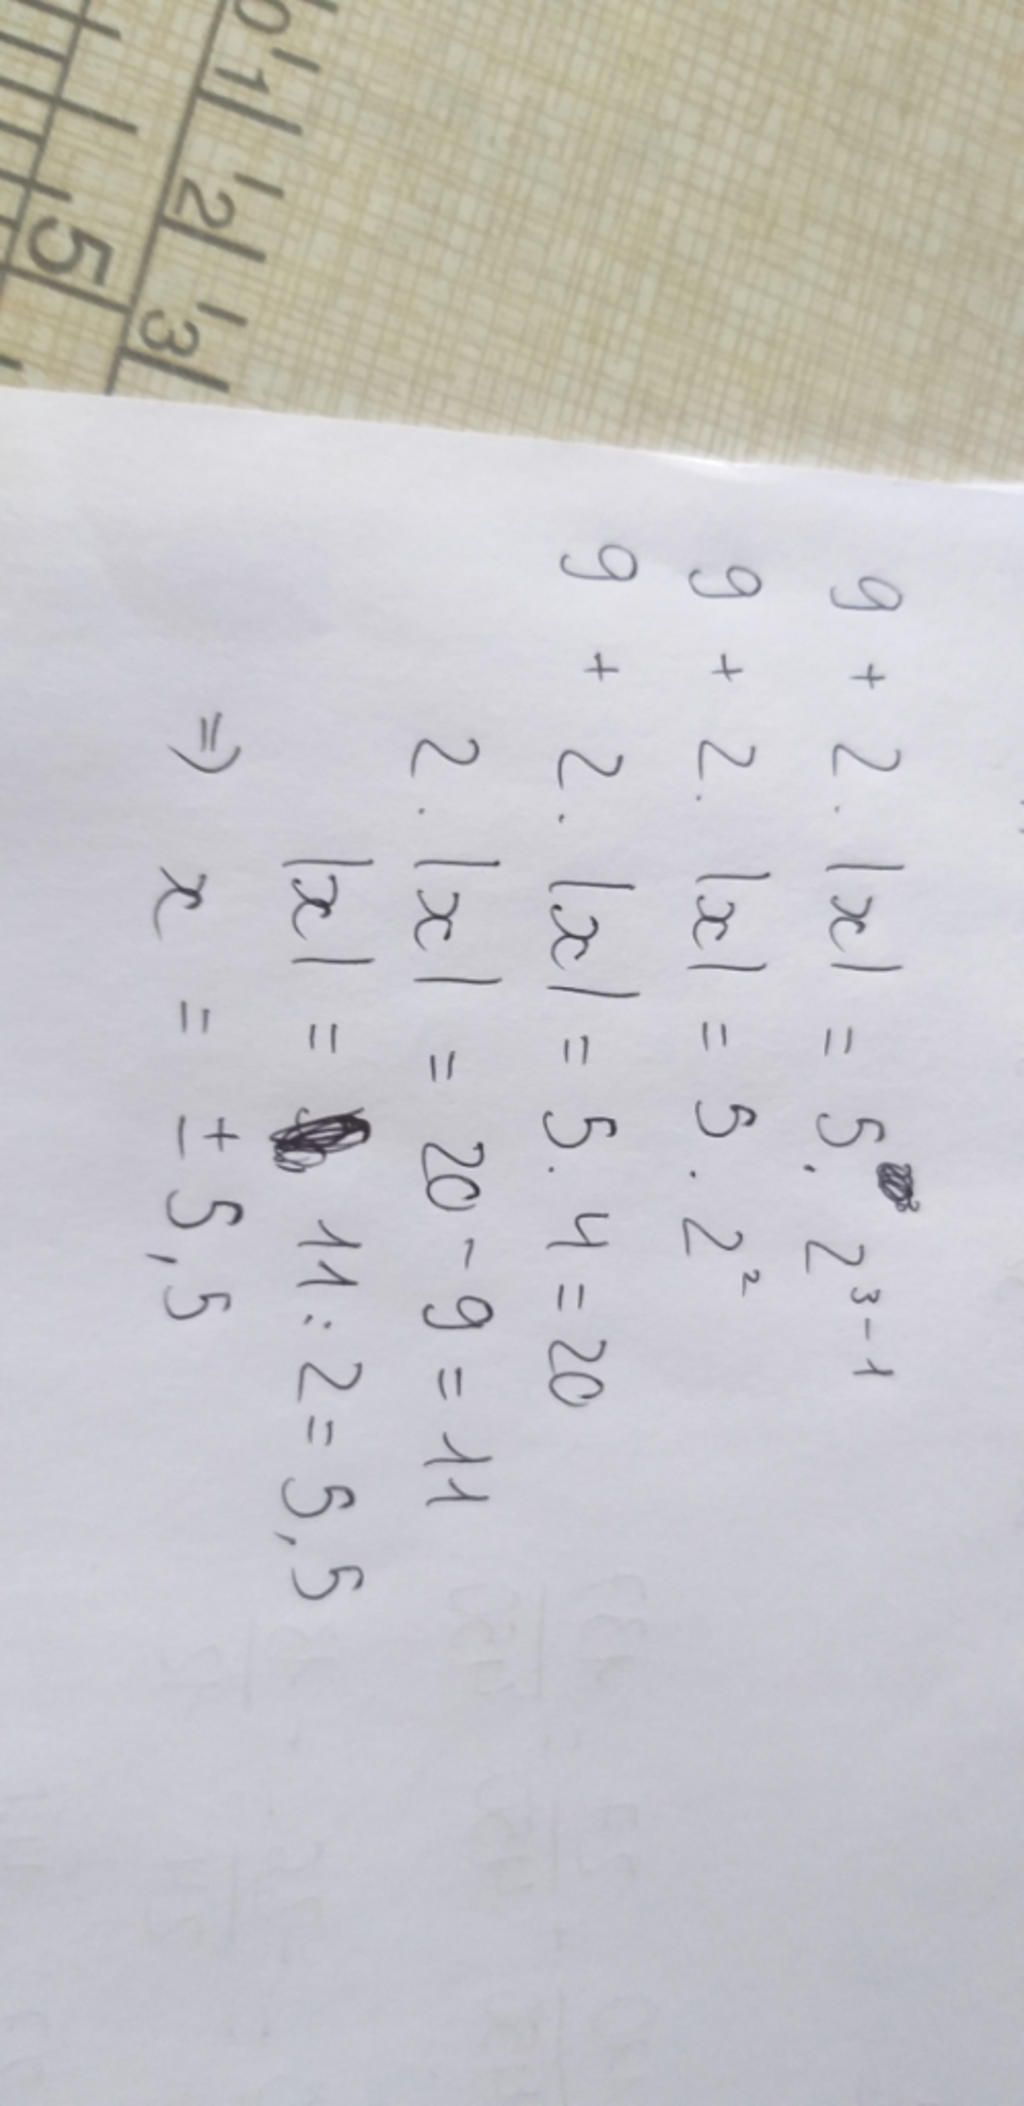 0 1 2 3
5
9 + 2. |x| = 5. 2³⁻¹
9 + 2. |x| = 5 . 2²
9 + 2. |x| = 5. 4 = 20
2. |x| = 20 - 9 = 11
|x| = 11 : 2 = 5,5
⇒ x = ± 5,5